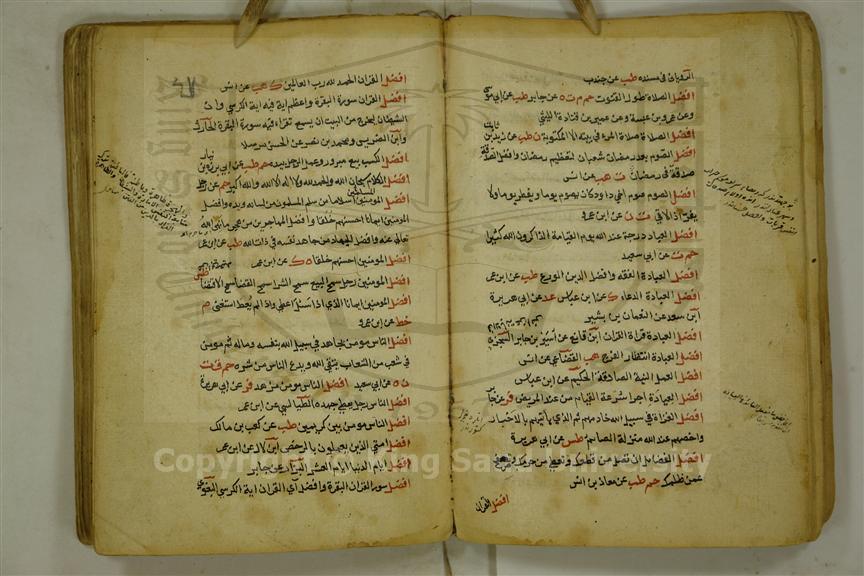 الروياني في مسنده طب عن جندب
افضل الصلاة طول القنوت حم م ت ه عن جابر طب عن ابي موسى
وعن عمرو بن عبسة وعن عمير بن قتادة الليثي
افضل الصلاة صلاة المرء في بيته الا المكتوبة ن طب عن زيد بن ثابت
افضل الصوم بعد رمضان شعبان لتعظيم رمضان وافضل الصدقة
صدقة في رمضان ت هب عن انس
افضل الصوم صوم اخي داود كان يصوم يوما ويفطر يوما ولا
يفر اذا لاقى ت ن عن ابن عمرو
افضل العباد درجة عند الله يوم القيامة الذاكرون الله كثيرا
حم ت عن ابي سعيد
افضل العبادة الفقه وافضل الدين الورع طب عن ابن عمر
افضل العبادة الدعاء ك عن ابن عباس عد عن ابي هريرة
ابن سعد عن النعمان بن بشير
افضل العبادة قراة القران ابن قانع عن اسير بن جابر السجزي
افضل العبادة انتظار الفرج هب القضاعي عن انس
افضل العمل النية الصادقة الحكيم عن ابن عباس
افضل العيادة اجرا سرعة القيام من عند المريض فر عن جابر
افضل الغزاة في سبيل الله خادمهم ثم الذي ياتيهم بالاخبار
واخصهم عند الله منزلة الصايم طس عن ابي هريرة
افضل الفضايل ان تصل من قطعك وتعطي من حرمك وتصفح
عمن ظلمك حم طب عن معاذ بن انس
افضل القران
افضل القران الحمد لله رب العالمين ك هب عن انس
افضل القران سورة البقرة واعظم اية فيه اية الكرسي وان
الشيطان ليخرج من البيت ان يسمع تقراء فيه سورة البقرة الحارث
وابن الضريس ومحمد بن نصر عن الحسن مرسلا
افضل الكسب بيع مبرور وعمل الرجل بيده حم طب عن ابي بردة بن نيار
افضل الكلام سبحان الله والحمد لله ولا اله الا الله والله اكبر حم عن رجل
افضل المومنين اسلاما من سلم المسلمون من لسانه ويده وافضل
المومنين ايمانا احسنهم خلقا وافضل المهاجرين من هجر ما نهى الله
تعالى عنه وافضل الجهاد من جاهد نفسه في ذات الله طب عن ابن عمرو
افضل المومنين احسنهم خلقا ه ك عن ابن عمر
افضل المومنين رجل سمح البيع سمح الشرا سمح القضا سمح الاقتضا طس
افضل المومنين ايمانا الذي اذا سئل اعطى واذا لم يعط استغنى
خط عن ابن عمرو
افضل الناس مومن يجاهد في سبيل الله بنفسه وماله ثم مومن
في شعب من الشعاب يتقي الله ويدع الناس من شره حم ق ت
ن ه عن ابي سعيد افضل الناس مومن مزهد فر عن ابي هريرة
افضل الناس رجل يعطي جهده الطيالسي عن ابن عمر
افضل الناس مومن بين كريمين طب عن كعب بن مالك
افضل امتي الذين يعملون بالرخص ابن لال عن ابن عمر
افضل ايام الدنيا ايام العشر البزار عن جابر
افضل سور القران البقرة وافضل آي القران اية الكرسي البغوي
Copyright © King Saud University